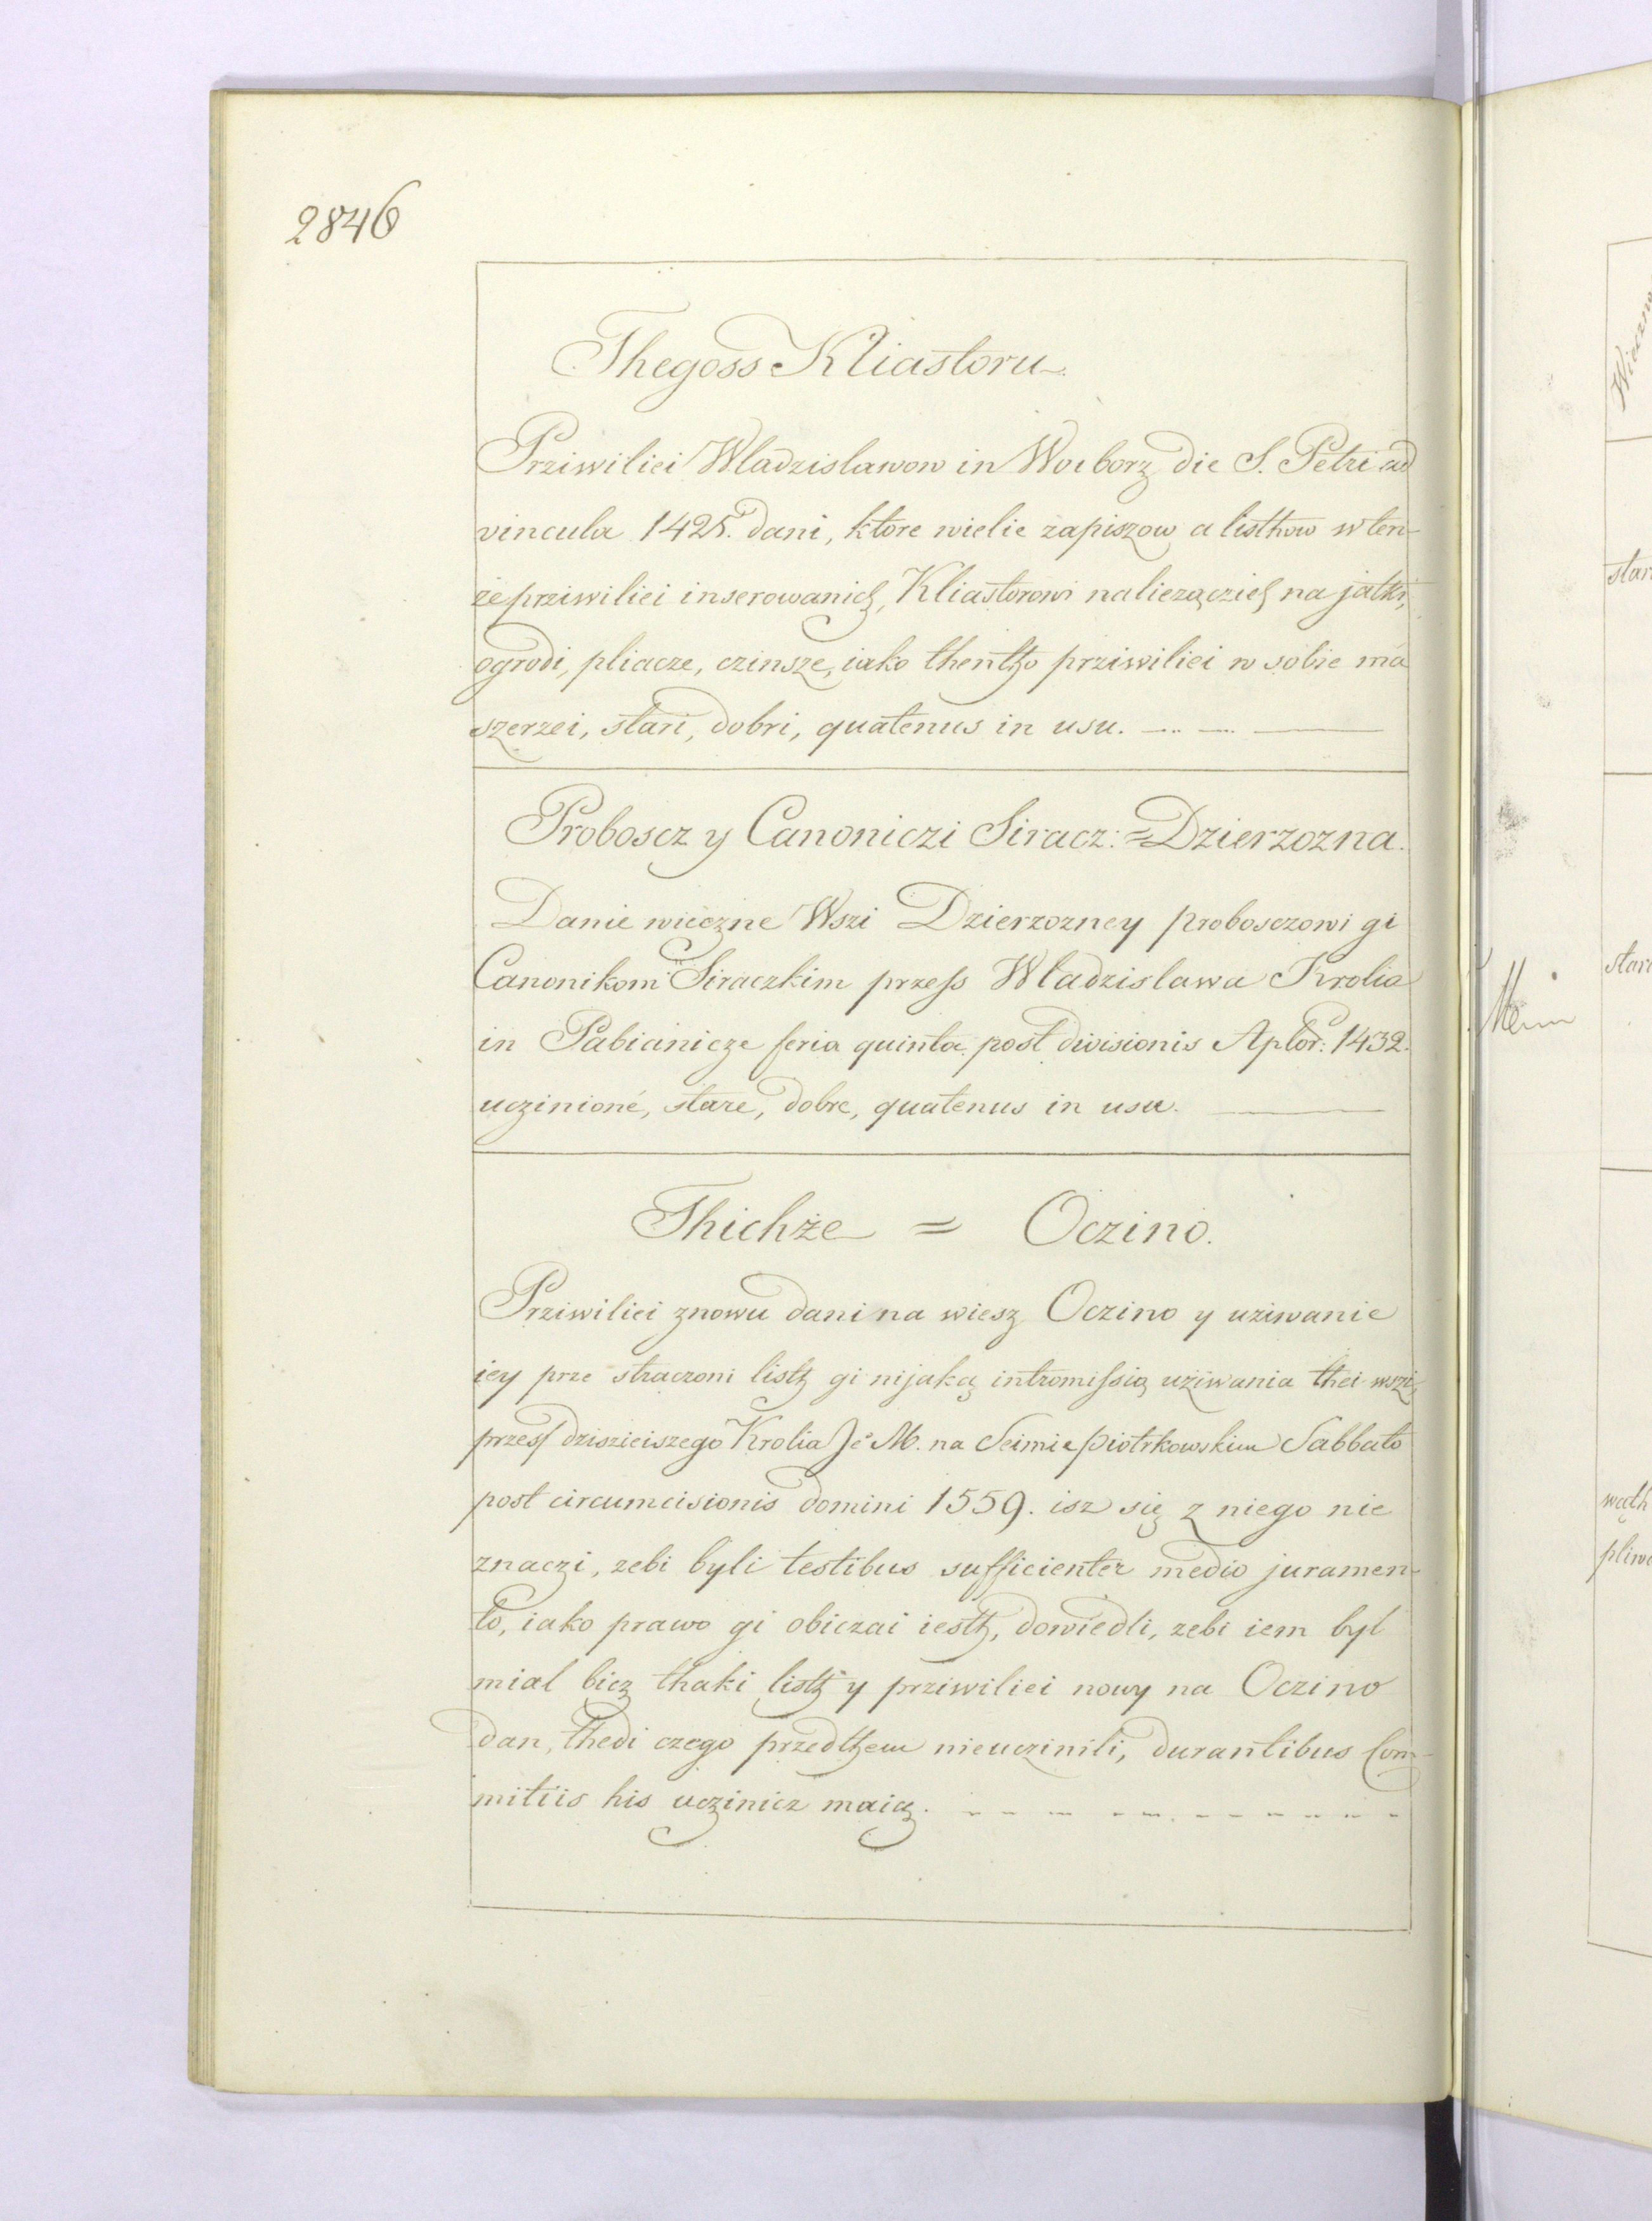 2846
Thegoss Kliastoru
Prziwiliei Wladzislawow in Woiborz die S. Petri ad
vincula 1425. dani, ktore wielie zapiszow a listhow w ten-
ze prziwiliei inserowanich, Kliastorowi naliezączich na jatki,
ogrodi, pliacze, czinsze, iako thentho prziwiliei w sobie ma
szerzei, stari, dobri, quatenus in usu.
Proboscz y Canoniczi Siracz: = Dzierzozna.
Danie wieczne Wszi Dzierzozney proboszczowi gi
Canonikom Siraczkim przess Wladzislawa Krolia
in Pabianicze feria quinta post divisionis Aptor: 1432.
uczinioné, stare, dobre, quatenus in usu.
Thichże = Oczino.
Prziwiliei znowu dani na wiesz Oczino y uziwanie
iey prze straczoni listh gi nijaką intromissią uziwania thei wszi,
przess dzisieiszego Krolia Je M. na Seimie piotrkowskim Sabbato
post circumcisionis domini 1559. isz się z niego nie
znaczi, zebi byli testibus sufficienter medio juramen-
to, iako prawo gi obiczai iesth, dowiedli, zebi iem byl
mial bicz thaki listh y prziwiliei nowy na Oczino
dan, thedi czego przedthem nieuczinili, durantibus Com-
mitiis his uczinicz maią.
star
stare
wąth
pliwe